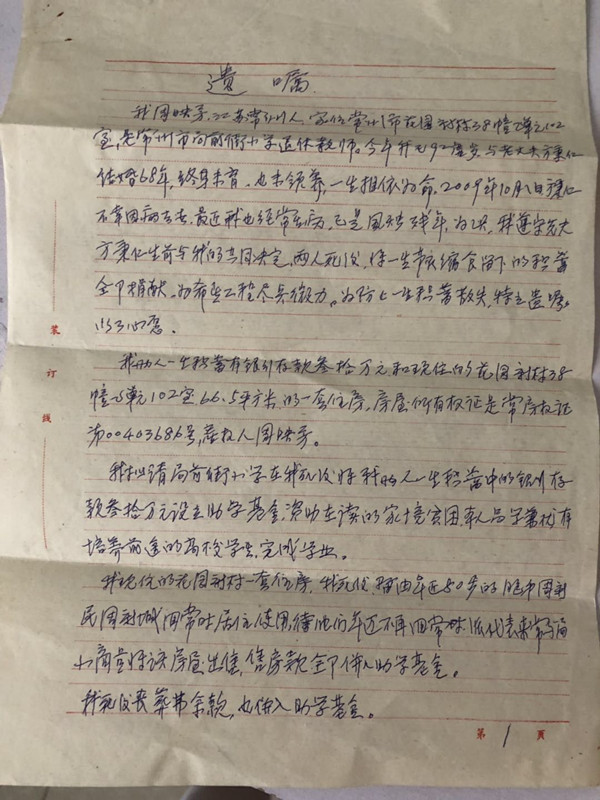 遗嘱
我周映芬,江苏常州人,家住常州市花园新村38幢乙单元102
室,是常州市局前街小学退休教师。今年我已92岁,与老丈夫方秉仁
结婚68年,终身未育,也未领养,一生相依为命,2009年10月八日秉仁
不幸因病去世,最近我也经常生病,已是风烛残年。为此,我遵守先夫
方秉仁生前与我的共同决定,两人死后,将一生节衣缩食留下的积蓄
全部捐献,为希望工程尽点微力。为防止一生积蓄散失,特立遗嘱。
以了心愿。
我两人一生积蓄有银行存款叁拾万元和现住的花园新村38
幢乙单元102室66.5平方米的一套住房,房屋所有权证是常房权证
第00403686号,产权人周映芬。
我拟请局前街小学在我死后将我两人一生积蓄中的银行存
款叁拾万元设立助学基金,资助在读的家境贫困本人品学兼优有
培养前途的高校学生,完成学业。
我现住的花园新村一套住房,我死后留由年近80岁的
民周新城回常时居住使用,待他们年迈不再回常时,派代表来常与局
小商量将该房屋出售,售房款全部併入助学基金。
我死后丧葬费余款,也併入助学基金。
装
订
线
第1页